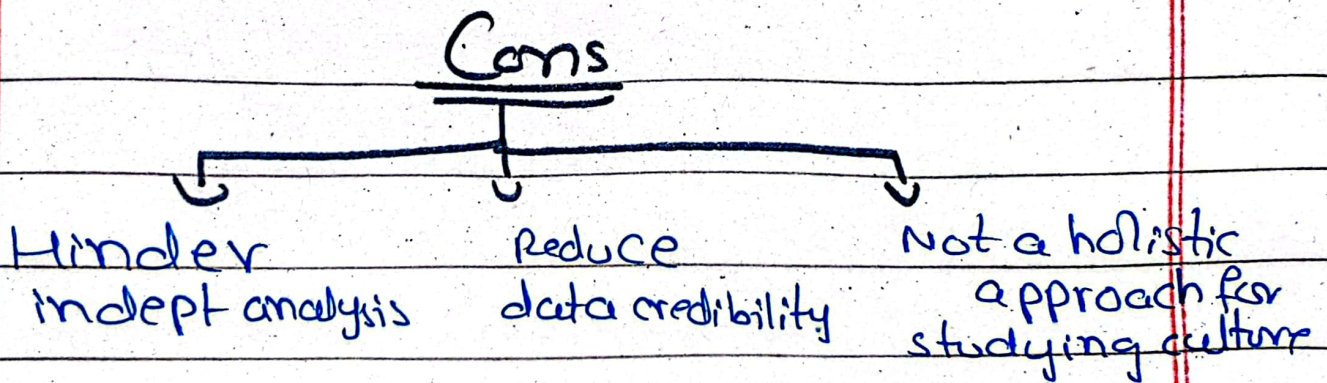 Cons
Hinder
indept analysis
Reduce
data credibility
Not a holistic
approach for
studying culture